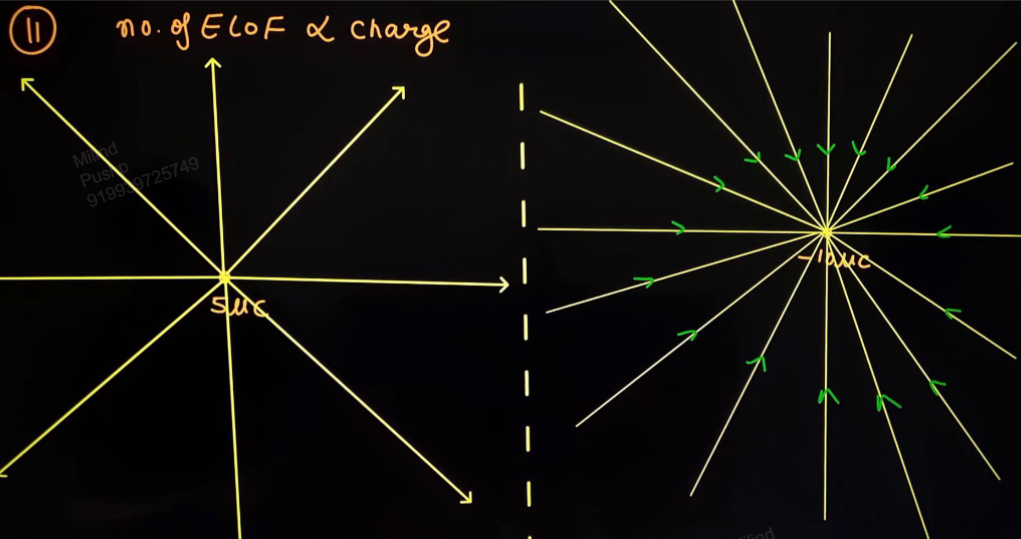 11 no. of ELOF ∝ charge
Milind
Pushp
919939725749
5μc
-10μc
Milind